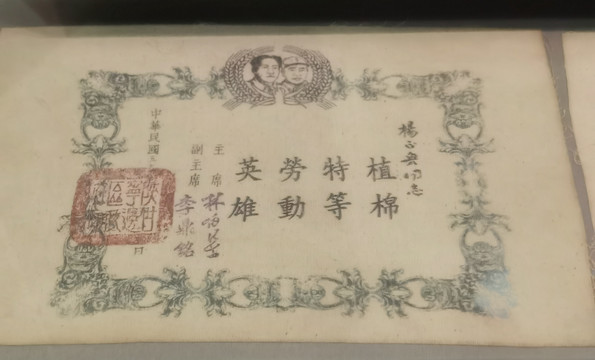 楊正興同志
植棉
特等
勞動
英雄
主席 林伯渠
副主席 李鼎銘
中華民國三
日
陝甘
寧邊
區政